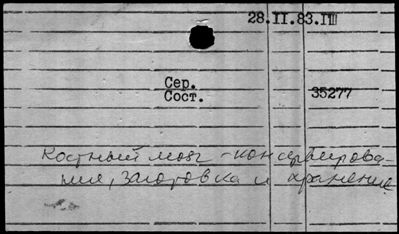 28.II.83.ГШ
Сер.
Сост. 35277
Костный мозг - консервирова-
ние, заготовка и хранение